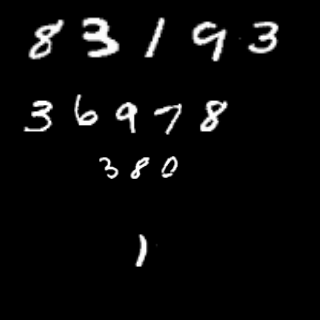 83193
36978
380
1